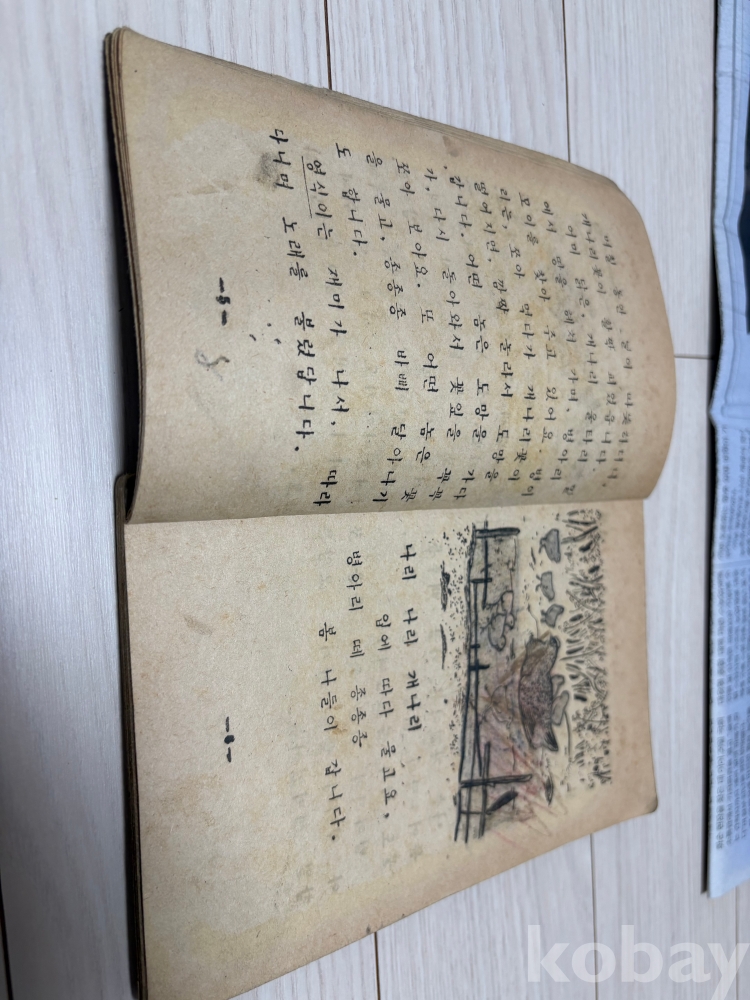 날이 따뜻하더니,
개나리 꽃이 활짝 피었습니다.
어미 닭은, 개나리 울타리
에서 땅을 헤쳐 가며, 병아리
모이를 찾아 주고 있어요. 병아
리는, 모이 먹다가 개나리꽃이
떨어지면, 깜짝 놀라서 도망을
칩니다. 어떤 놈은 도망을 가다
가, 다시 돌아와서 꽃잎을 콕콕
쪼아 보아요. 또 어떤 놈은 꽃
을 물고, 종종종 바삐 달아나기
도 합니다.
영식이는 재미가 나서, 따라
다니며 노래를 불렀답니다.
나리 나리 개나리
입에 따다 물고요,
병아리 떼 종종종
봄 나들이 갑니다.
kobay